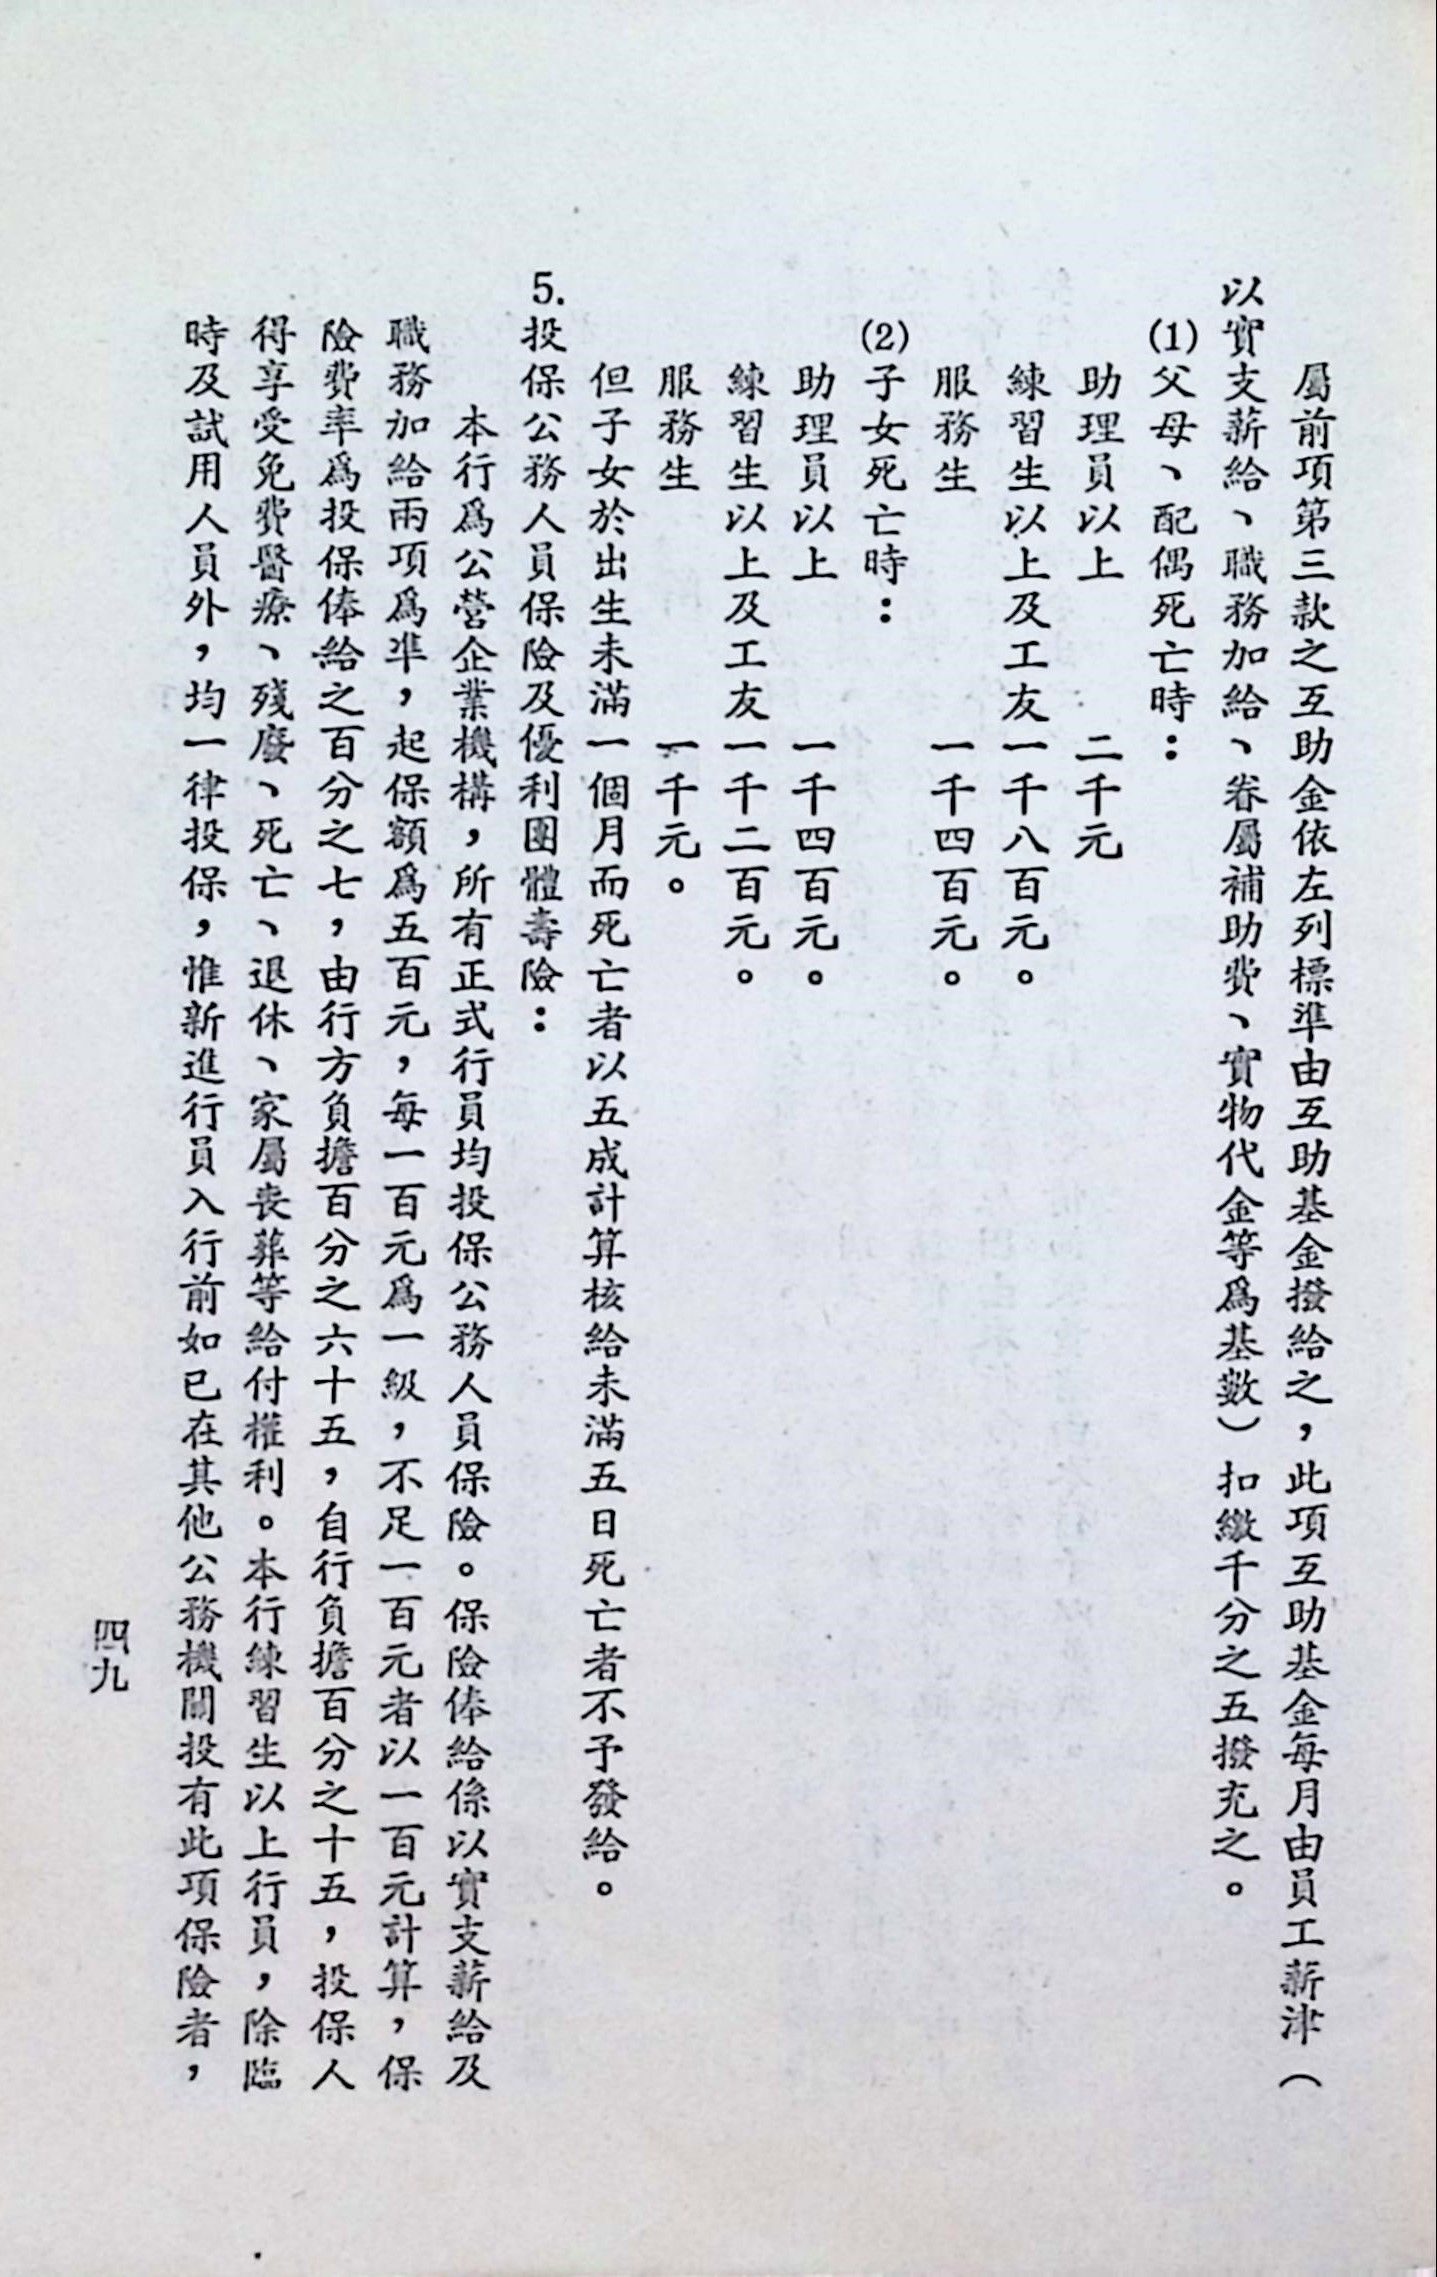 屬前項第三款之互助金依左列標準由互助基金撥給之，此項互助基金每月由員工薪津（
以實支薪給、職務加給、眷屬補助費、實物代金等爲基數）扣繳千分之五撥充之。
(1)父母、配偶死亡時：
助理員以上　　　二千元
練習生以上及工友一千八百元。
服務生　　　　　一千四百元。
(2)子女死亡時：
助理員以上　　　一千四百元。
練習生以上及工友一千二百元。
服務生　　　　　一千元。
但子女於出生未滿一個月而死亡者以五成計算核給未滿五日死亡者不予發給。
5.投保公務人員保險及優利團體壽險：
本行爲公營企業機構，所有正式行員均投保公務人員保險。保險俸給係以實支薪給及
職務加給兩項爲準，起保額爲五百元，每一百元爲一級，不足一百元者以一百元計算，保
險費率爲投保俸給之百分之七，由行方負擔百分之六十五，自行負擔百分之十五，投保人
得享受免費醫療、殘廢、死亡、退休、家屬喪葬等給付權利。本行練習生以上行員，除臨
時及試用人員外，均一律投保，惟新進行員入行前如已在其他公務機關投有此項保險者，
四九